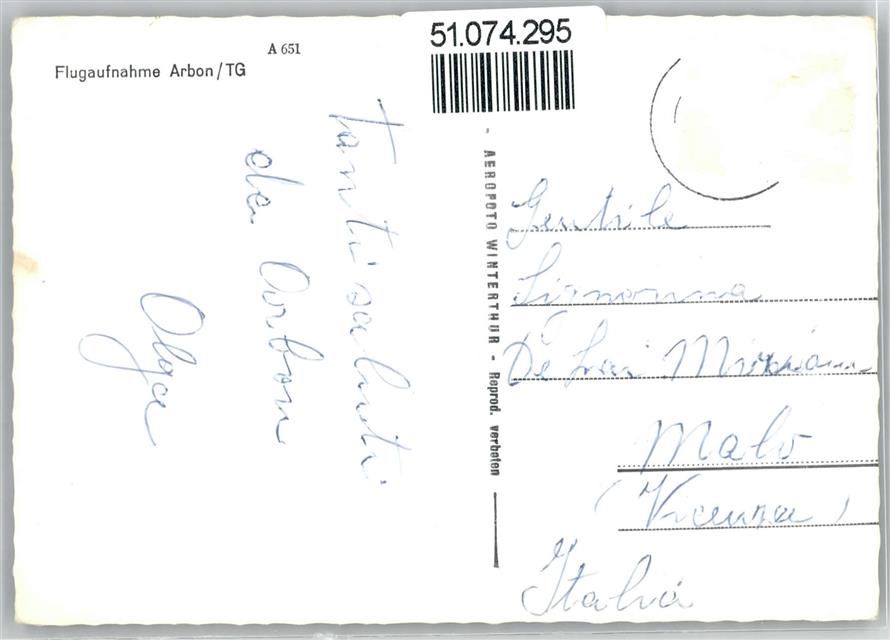 A 651
Flugaufnahme Arbon/TG
51.074.295
Tanti saluti
da Arbon
Olga
- AEROFOTO WINTERTHUR - Reprod. verboten
Gentile
Signorina
De
Malo
(Vicenza)
Italia